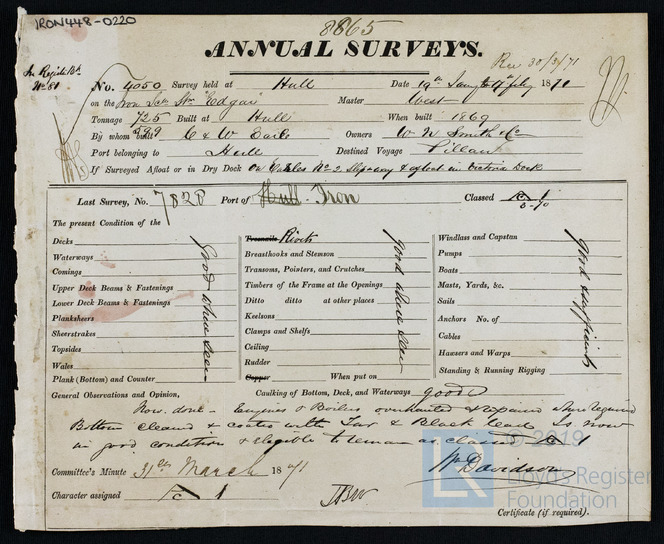 IRON448-0220
8865
ANNUAL SURVEYS.
Rec 30/3/71
In Register Bk
No. 4050 Survey held at Hull Date 19th Jany to 17th Feby 1871
on the Iron Sctr Str "Edgar" Master West
Tonnage 725 Built at Hull When built 1869
599
By whom built C & W Earle Owners
Port belonging to Hull Destined Voyage Pillau
If Surveyed Afloat or in Dry Dock On Earles No 2 Slipway & afloat in Victoria Dock
Last Survey, No. 7828 Port of Hull. Iron Classed A 1
The present Condition of the
Decks
Waterways
Comings
Upper Deck Beams & Fastenings
Lower Deck Beams & Fastenings
Planksheers
Sheerstrakes
Topsides
Wales
Plank (Bottom) and Counter
good where seen
Treenails Rivets
Breasthooks and Stemson
Transoms, Pointers, and Crutches
Timbers of the Frame at the Openings
Ditto ditto at other places
Keelsons
Clamps and Shelfs
Ceiling
Rudder
Copper When put on
good where seen
Windlass and Capstan
Pumps
Boats
Masts, Yards, &c.
Sails
Anchors No. of
Cables
Hawsers and Warps
Standing & Running Rigging
good & sufficient
General Observations and Opinion, Caulking of Bottom, Deck, and Waterways good
Now done - Engines & Boilers overhauled & repaired where required
Bottom cleaned & coated with Tar & Black lead Is now
in good condition & eligible to remain as classed A 1
Wm Davidson
Committee's Minute 31st March 1871
Character assigned A 1
Certificate (if required).
© 2019
LR
Lloyd's Register
Foundation